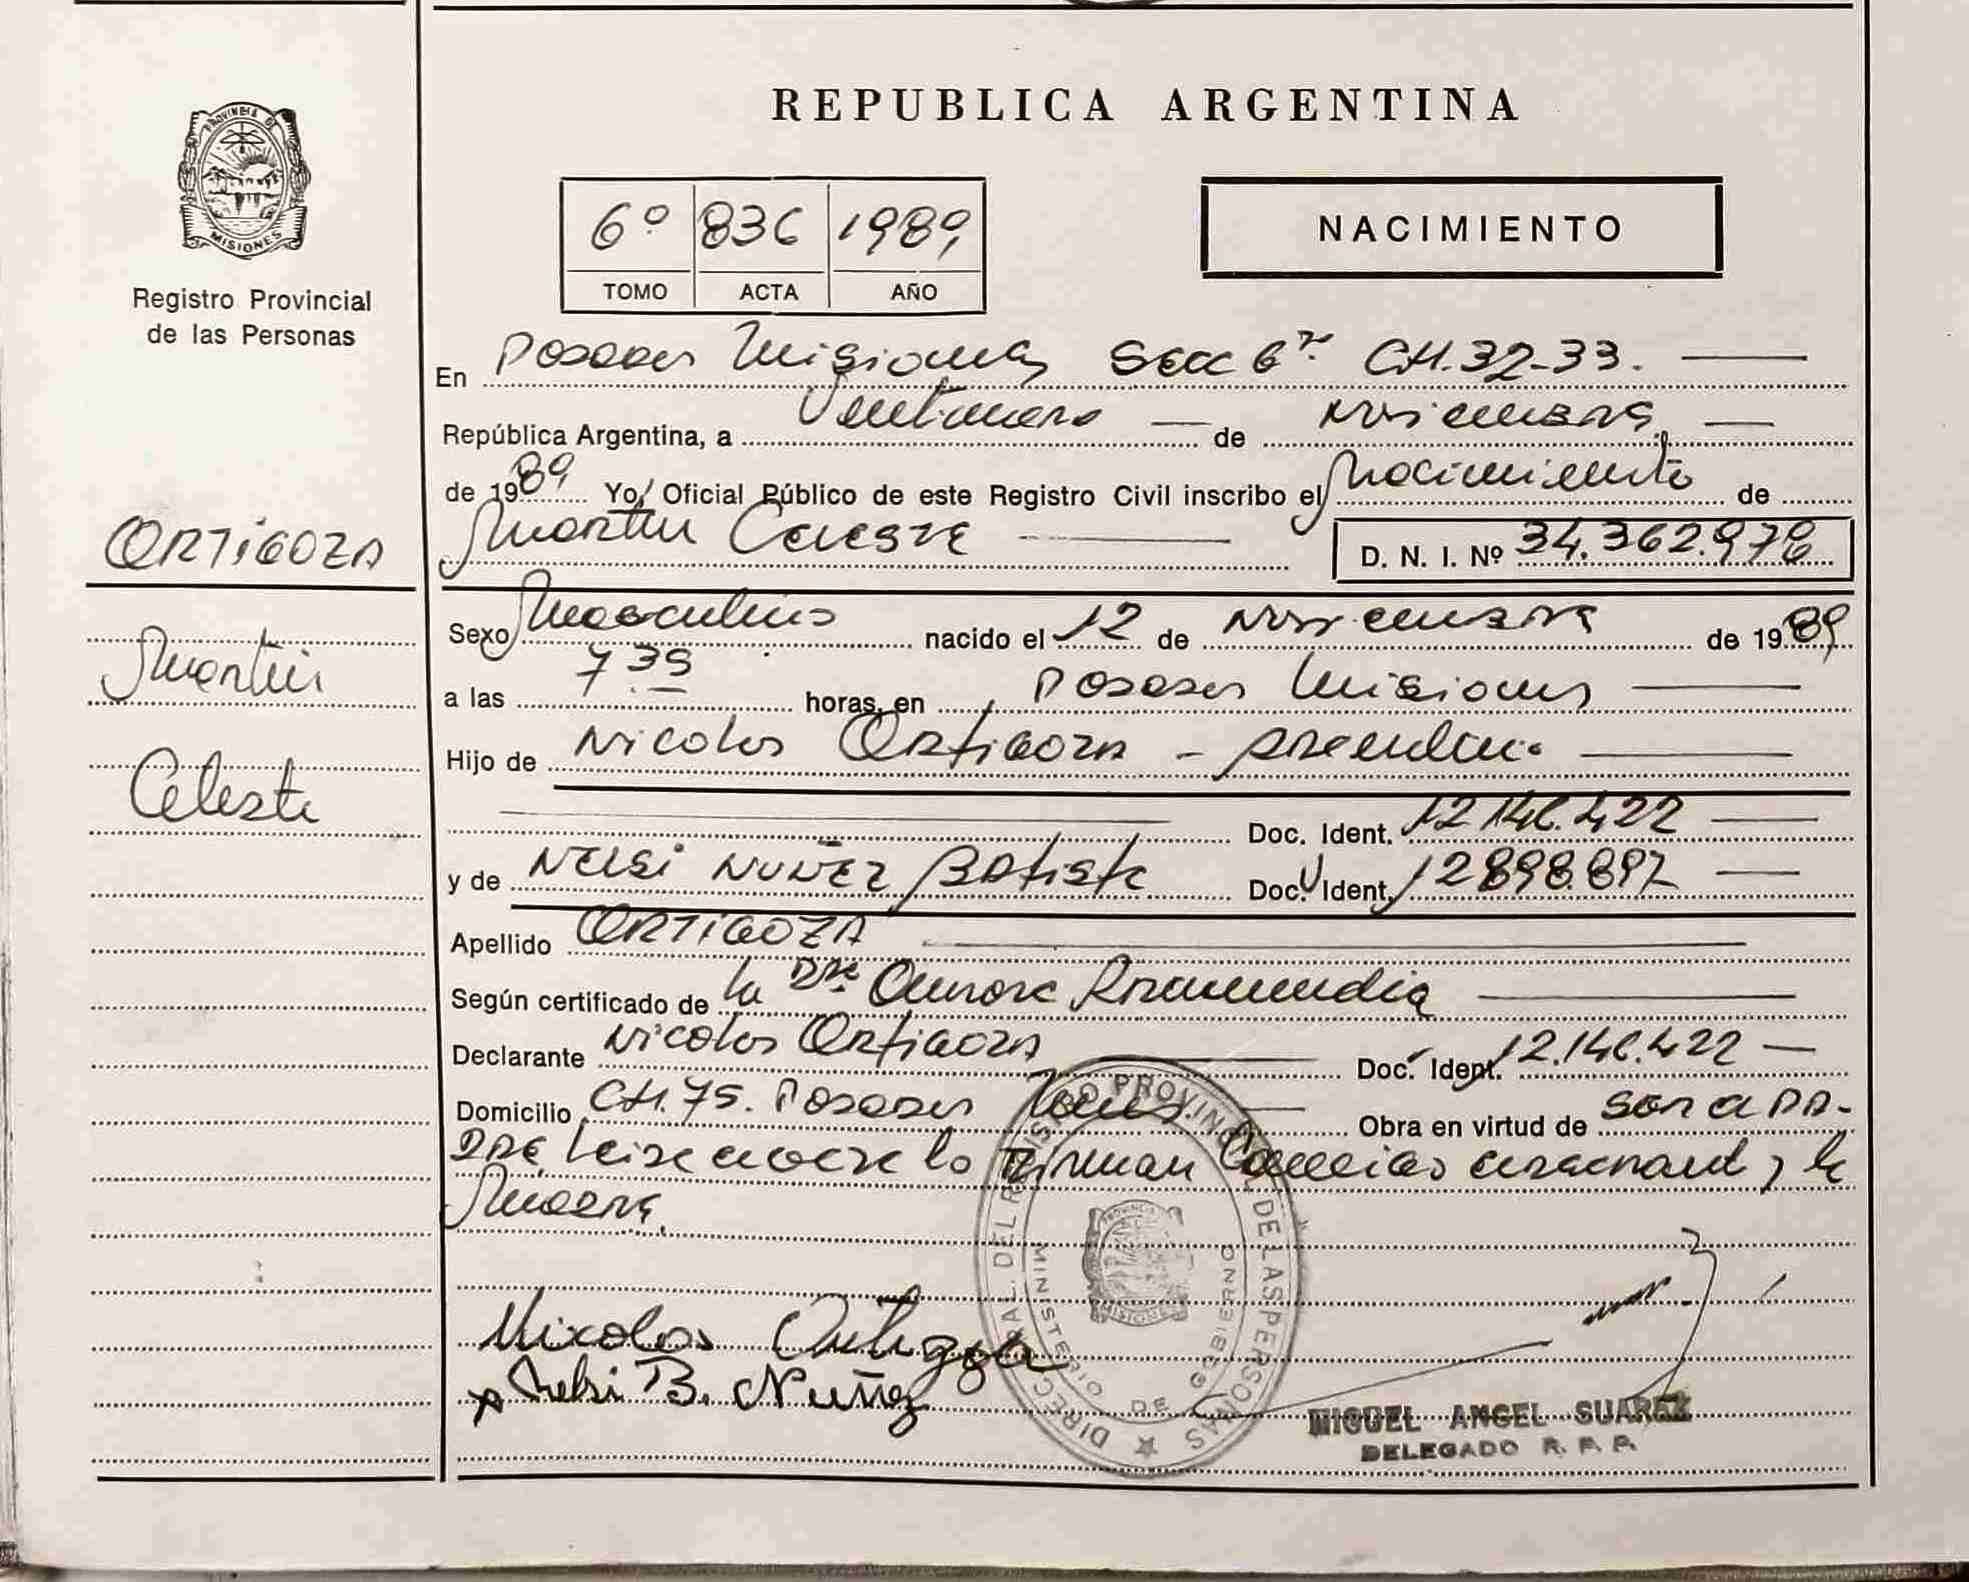 PROVINCIA DE
MISIONES
Registro Provincial
de las Personas
ORTIGOZA
Martin
Celeste
REPUBLICA ARGENTINA
6º 836 1989
TOMO ACTA AÑO
NACIMIENTO
En Posadas Misiones Secc 6ª CH. 32-33.
República Argentina, a Veintinueve de Noviembre
de 1989 Yo, Oficial Público de este Registro Civil inscribo el Nacimiento de
Martin Celeste D. N. I. Nº 34.362.976
Sexo Masculino nacido el 12 de Noviembre de 1989
a las 7.35 horas, en Posadas Misiones
Hijo de Nicolas Ortigoza -
Doc. Ident. 12.146.422
y de Nelsi Nuñez Batista Doc. Ident. 12.898.897
Apellido ORTIGOZA
Según certificado de la Dra.
Declarante Nicolas Ortigoza Doc. Ident. 12.146.422
Domicilio CH. 75. Posadas Mnes. Obra en virtud de ser el pa-
dre. Leida el acta la firman y la
Madre.
Nixolas Ortigoza
x Nelsi B. Nuñez
DIRECC. GRAL. DEL REGISTRO PROVINCIAL DE LAS PERSONAS
MINISTERIO DE GOBIERNO
PROVINCIA
MISIONES
MIGUEL ANGEL SUAREZ
DELEGADO R. P. P.